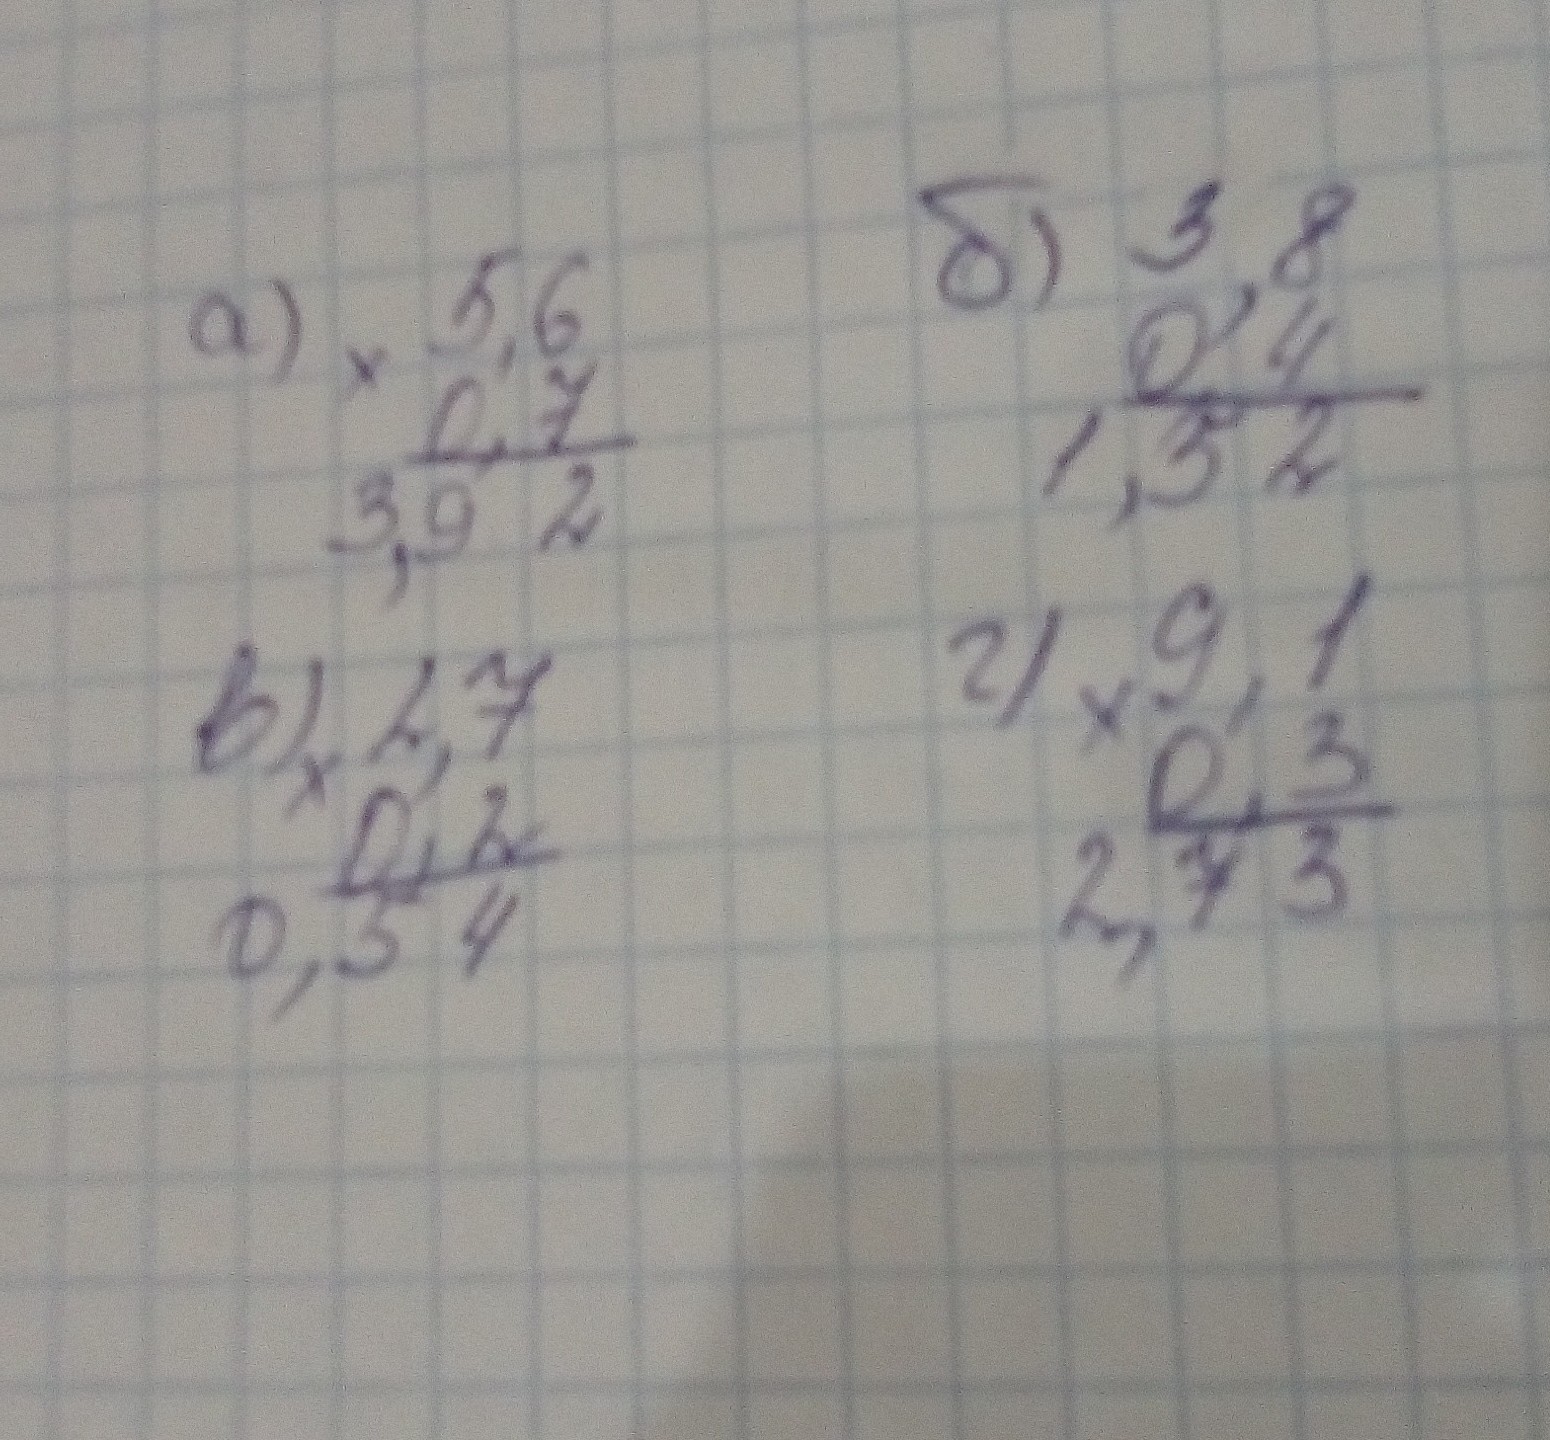 а) × 5,6
0,7
3,92
б) 3,8
0,4
1,52
в) × 2,7
0,2
0,54
г) × 9,1
0,3
2,73